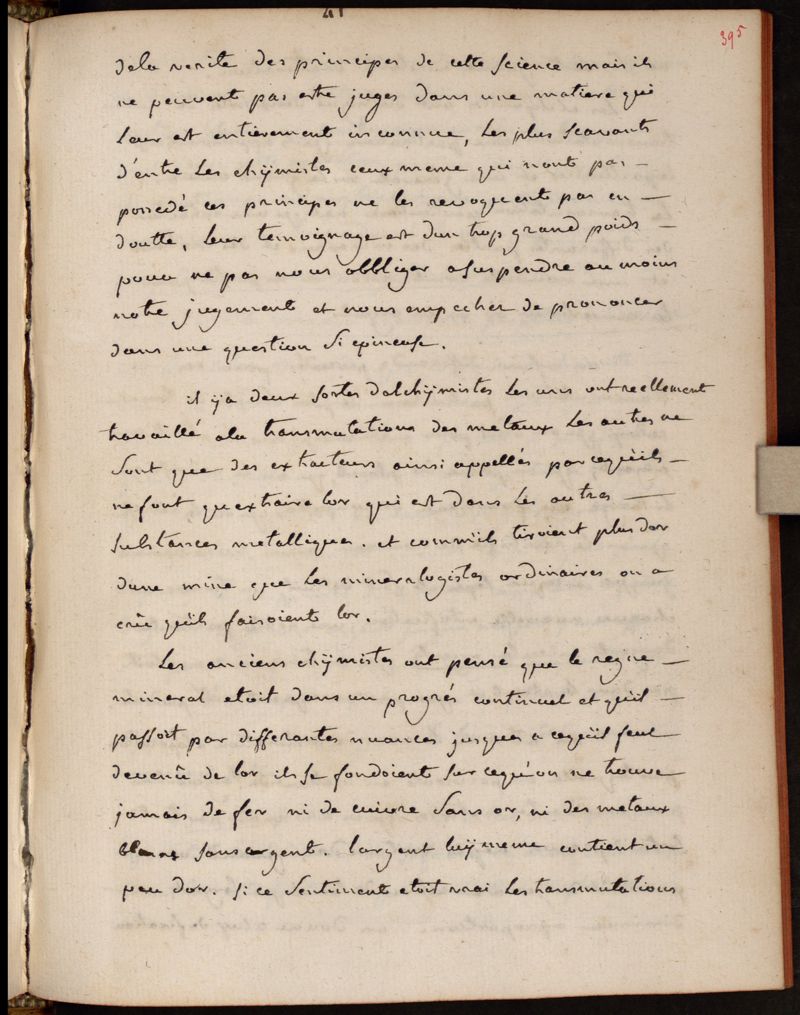 395
dela verite des principes de cette science mais ils
ne peuvent pas estre juges dans une matiere qui
leur est entierement inconnue, Les plus scavants
d'entre Les chÿmistes ceux meme qui n'ont pas -
possedé ces principes ne les revoquent pas en -
doutte, Leur temoignage est d'un trop grand poids -
pour ne pas nous obbliger a suspendre au moins
notre jugement et nous empecher de prononcer
dans une question si epineuse.
il ÿ a deux sortes d'alchÿmistes Les uns ont reellement
travaillé ala transmutations des metaux Les autres ne
sont que des extracteurs ainsi appellés parcequ'ils -
ne font qu'extraire lor qui est dans Les autres -
substances metalliques. et comm'ils tiroient plus dor
dune mine que Les mineralogistes ordinaires on a
crû qu'ils faisoient lor.
Les anciens chÿmistes ont pensé que le regne -
mineral etoit dans un progrés continuel et qu'il -
passoit par differantes nuances jusques a cequ'il feut
devenû de lor ils se fondoient sur cequ'on ne trouve
jamais de fer ni de cuivre sans or, ni des metaux
blancs sans argent. l'argent luÿ meme contient un
peu dor. si ce sentiment etoit vrai Les transmutations